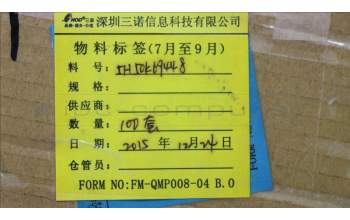 深圳三诺信息科技有限公司
物料标签(7月至9月)
料号: 5H50K69448
规格:
供应商:
数量: 100套
日期: 2015年12月24日
仓管员:
FORM NO:FM-QMP008-04 B.0